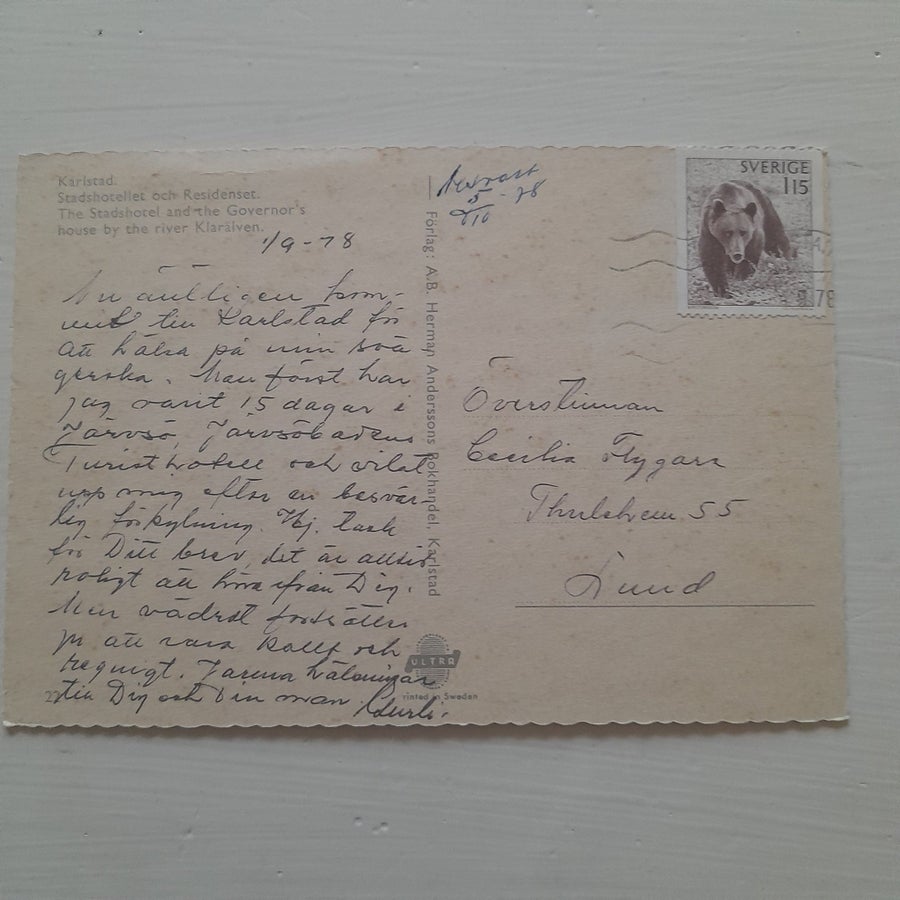 Karlstad.
Stadshotellet och Residenset.
The Stadshotel and the Governor's
house by the river Klarälven.
1/9-78
Nu äntligen kom-
mit till Karlstad för
att hälsa på min svä
gerska. Men först har
jag varit 15 dagar i
Järvsö, Järvsöbadens
Turisthotell och vilat
upp mig efter en besvär
lig förkylning. Hj. tack
för Ditt brev, det är alltid
roligt att höra ifrån Dig.
Men vädret fortsätter
ju att vara kallt och
regnigt. Varma hälsningar
till Dig och Din man
22
Förlag: A.B. Herman Anderssons Bokhandel, Karlstad
ULTRA
Printed in Sweden
5/10 -78
SVERIGE
115
78
Överstinnan
Cecilia Flygare
55
Lund